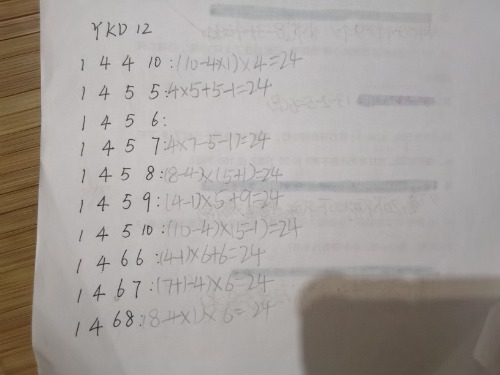 YKD 12
1 4 4 10:(10-4×1)×4=24
1 4 5 5:4×5+5-1=24
1 4 5 6:
1 4 5 7:4×7-5-1)=24
1 4 5 8:(8-4)×(5+1)=24
1 4 5 9:(4-1)×5+9=24
1 4 5 10:(10-4)×(5-1)=24
1 4 6 6:(4-1)×6+6=24
1 4 6 7:(7+1-4)×6=24
1 4 6 8:(8-4×1)×6=24